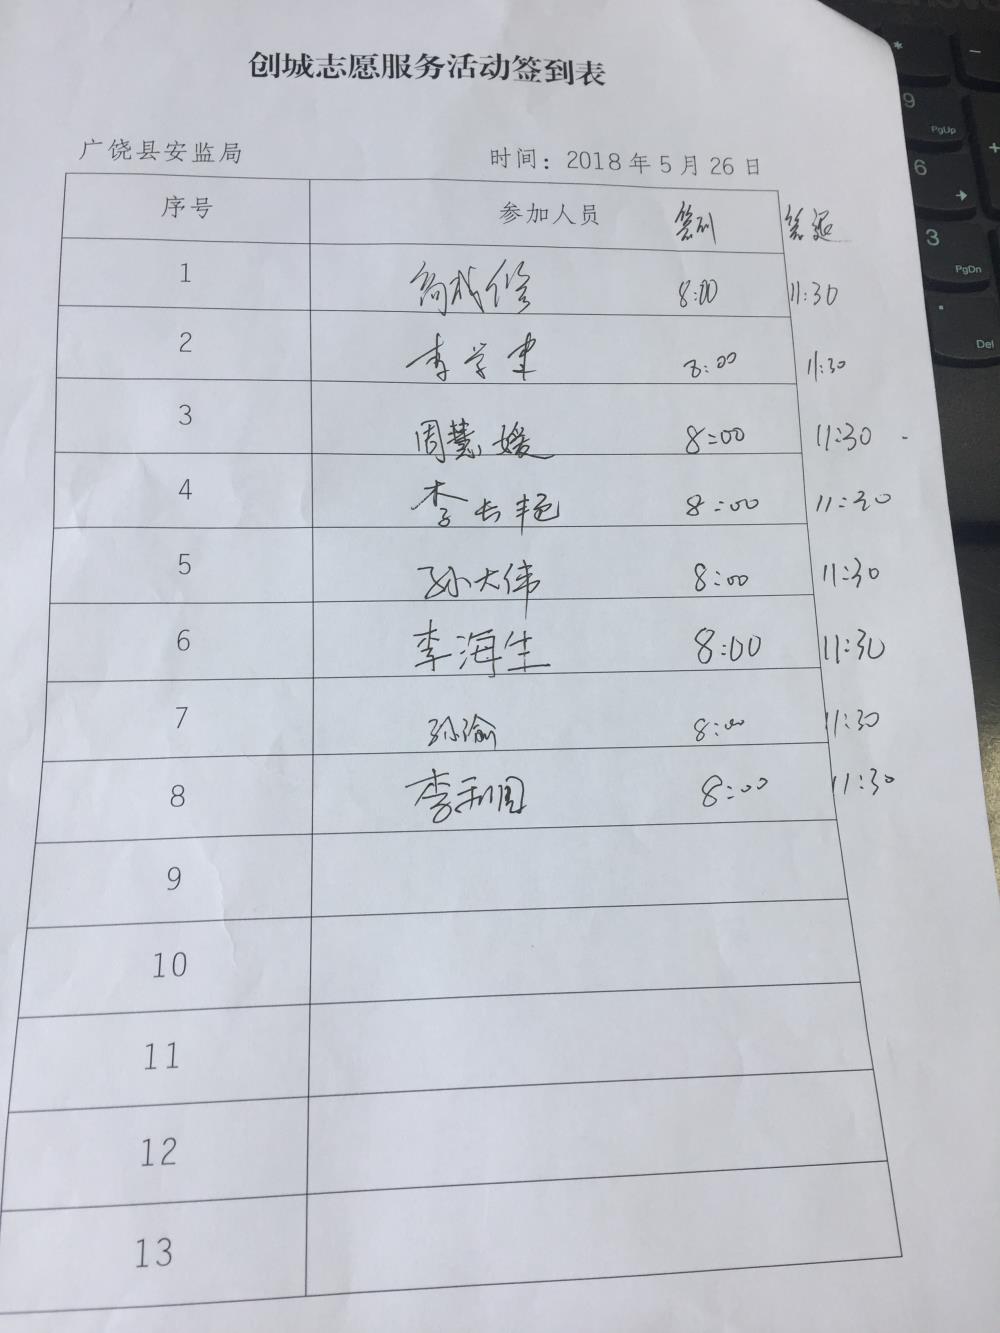 创城志愿服务活动签到表
广饶县安监局 时间：2018年5月26日
序号 参加人员 签到 签退
1 8:00 11:30
2 李学建 8:00 11:30
3 周慧媛 8:00 11:30
4 李长艳 8:00 11:30
5 孙大伟 8:00 11:30
6 李海生 8:00 11:30
7 孙瑜 8:00 11:30
8 李利国 8:00 11:30
9
10
11
12
13
* -
9 PgUp +
6 →
3 PgDn
. Del